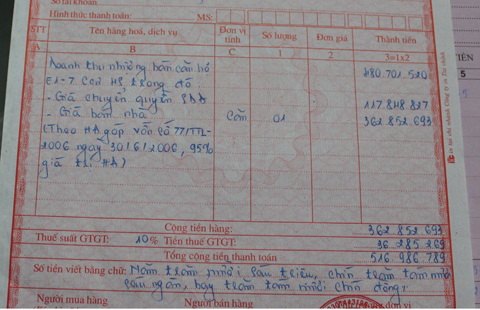 Số tài khoản
Hình thức thanh toán: MS:
STT Tên hàng hoá, dịch vụ Đơn vị tính Số lượng Đơn giá Thành tiền
A B C 1 2 3=1x2
Doanh thu nhượng bán căn hộ 480.701.520
E1-7 Cor H8 trong đó:
- Giá chuyển quyền SDĐ 117.848.827
- Giá bán nhà Căn 01 362.852.693
(Theo HĐ góp vốn số 77/TTL-
2006 ngày 30/6/2006, 95%
giá trị HĐ)
Cộng tiền hàng: 362.852.693
Thuế suất GTGT: 10% Tiền thuế GTGT: 36.285.269
Tổng cộng tiền thanh toán 516.986.789
Số tiền viết bằng chữ: Năm trăm mười sáu triệu, chín trăm tám mươi
sáu ngàn, bảy trăm tám mươi chín đồng.
Người mua hàng Người bán hàng đơn vị
TIỀN
5